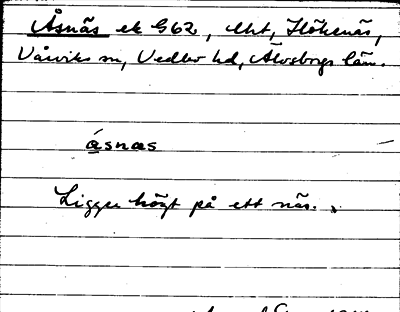 Åsnäs ek G62, Uht, Hökenäs,
Vårviks sn, Vedbo hd, Älvsborgs län.
åsnæs
Ligger högt på ett näs.